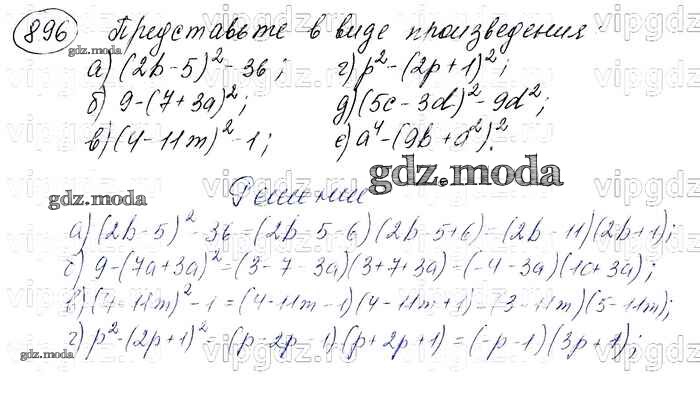 896 Представьте в виде произведения:
а) (2b-5)² - 36; г) p² - (2p+1)²;
б) 9-(7+3a)²; д) (5c-3d)² - 9d²;
в) (4-11m)² - 1; е) a⁴ - (9b+a²)².
Решение
а) (2b-5)² - 36 = (2b-5-6)(2b-5+6) = (2b-11)(2b+1);
б) 9-(7a+3a)² = (3-7-3a)(3+7+3a) = (-4-3a)(10+3a);
в) (4-11m)² - 1 = (4-11m-1)(4-11m+1) = (3-11m)(5-11m);
г) p² - (2p+1)² = (p-2p-1)(p+2p+1) = (-p-1)(3p+1);
gdz.moda
gdz.moda
gdz.moda
gdz.moda
vipgdz